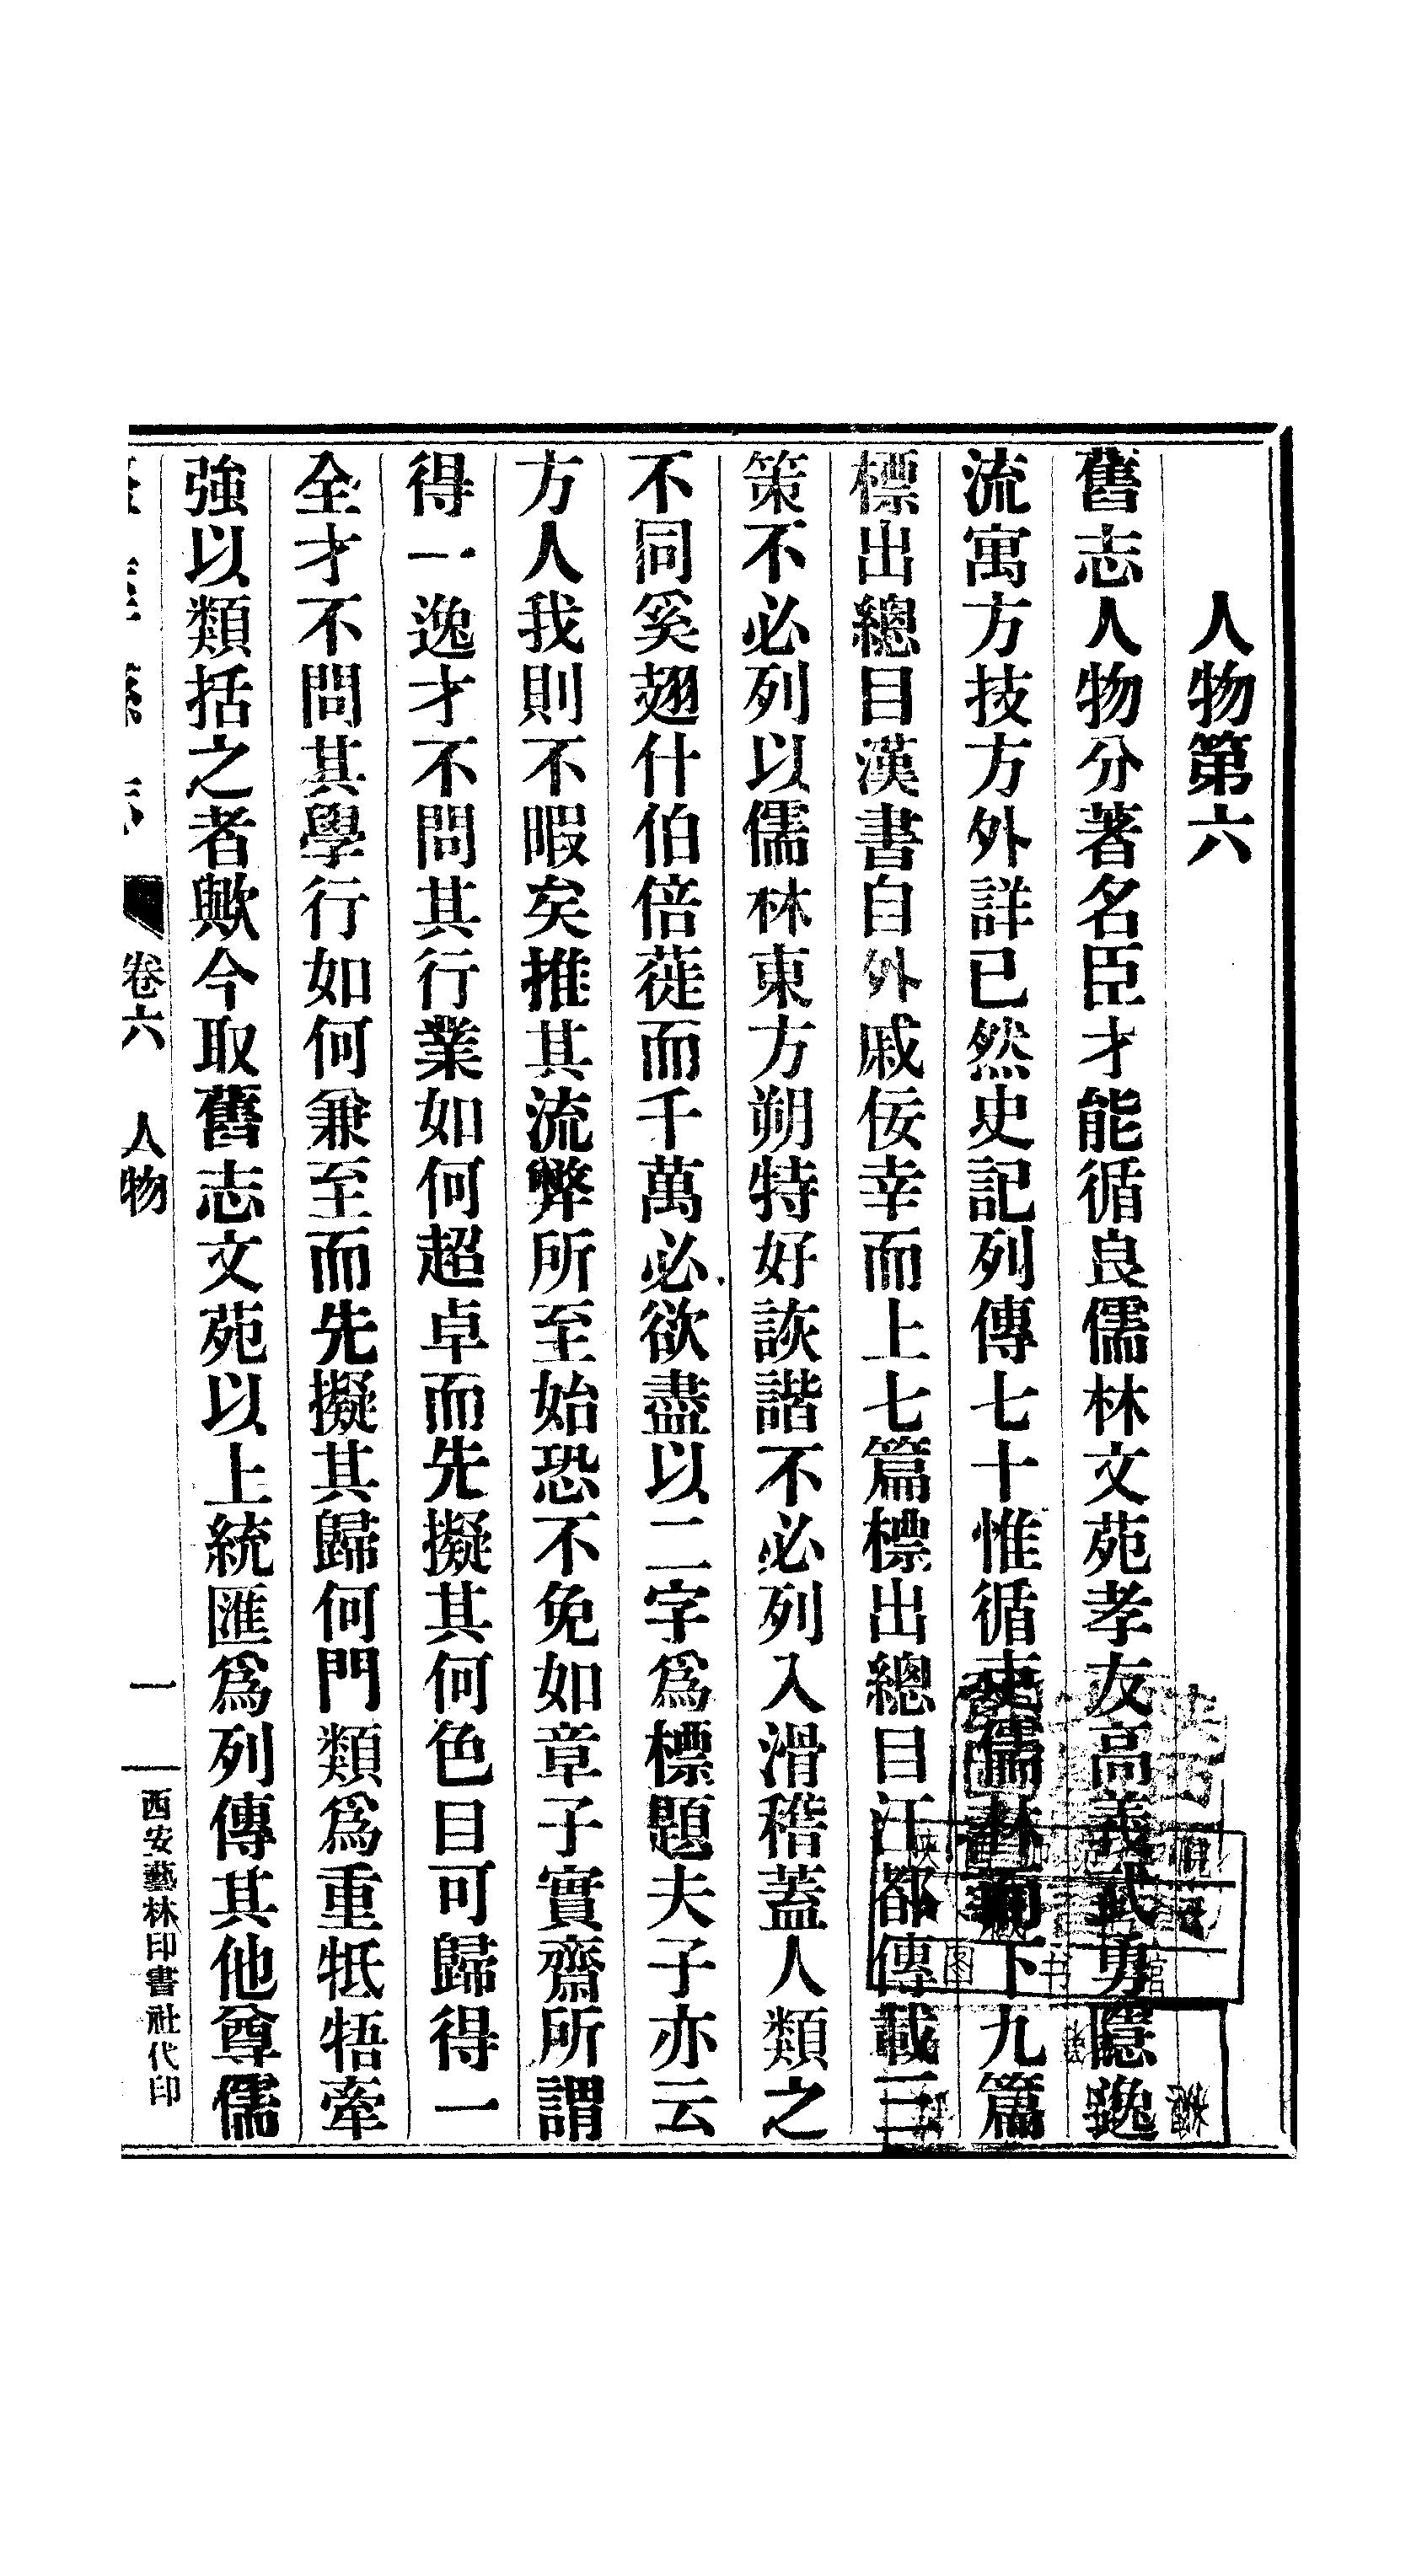 人物第六
舊志人物分著名臣才能循良儒林文苑孝友高義武勇隱逸
流寓方技方外詳已然史記列傳七十惟循吏儒林而下九篇
標出總目漢書自外戚佞幸而上七篇標出總目江都傳載三
策不必列以儒林東方朔特好詼諧不必列入滑稽蓋人類之
不同奚翅什伯倍蓰而千萬必欲盡以二字爲標題夫子亦云
方人我則不暇矣推其流弊所至始恐不免如章子實齋所謂
得一逸才不問其行業如何超卓而先擬其何色目可歸得一
全才不問其學行如何兼至而先擬其歸何門類爲重牴牾牽
強以類括之者歟今取舊志文苑以上統匯爲列傳其他尊儒
卷六 人物
一
西安藝林印書社代印